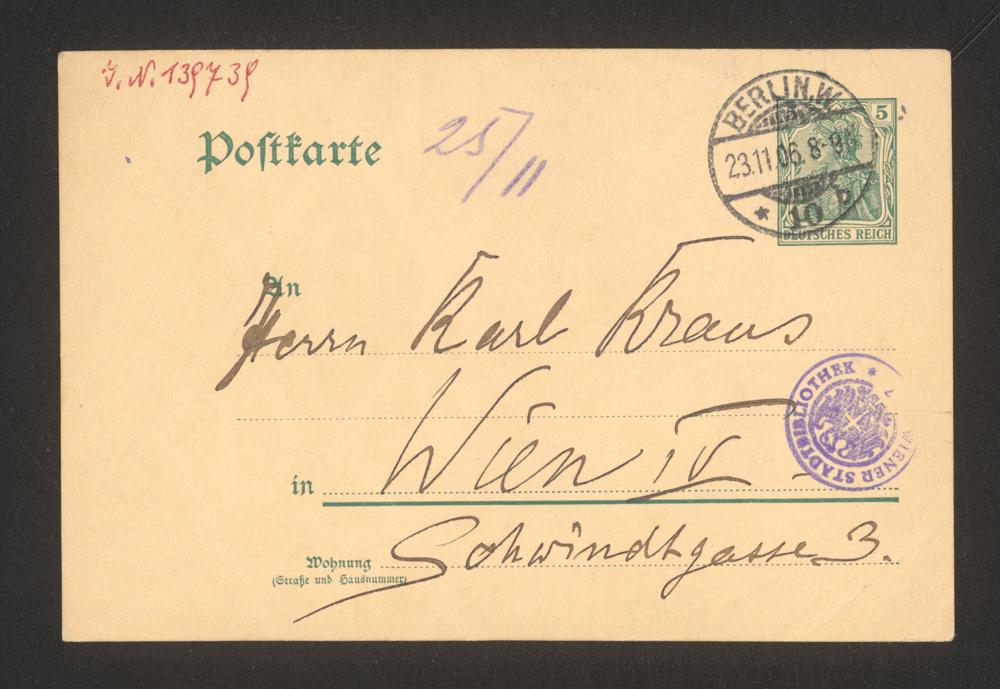 J. N. 139739
Postkarte
25/11
BERLIN.W.
23.11.06. 8-9
* 10 b.
5
DEUTSCHES REICH
An
Herrn Karl Kraus
WIENER STADTBIBLIOTHEK *
in Wien IV
Schwindtgasse 3.
Wohnung
(Straße und Hausnummer)